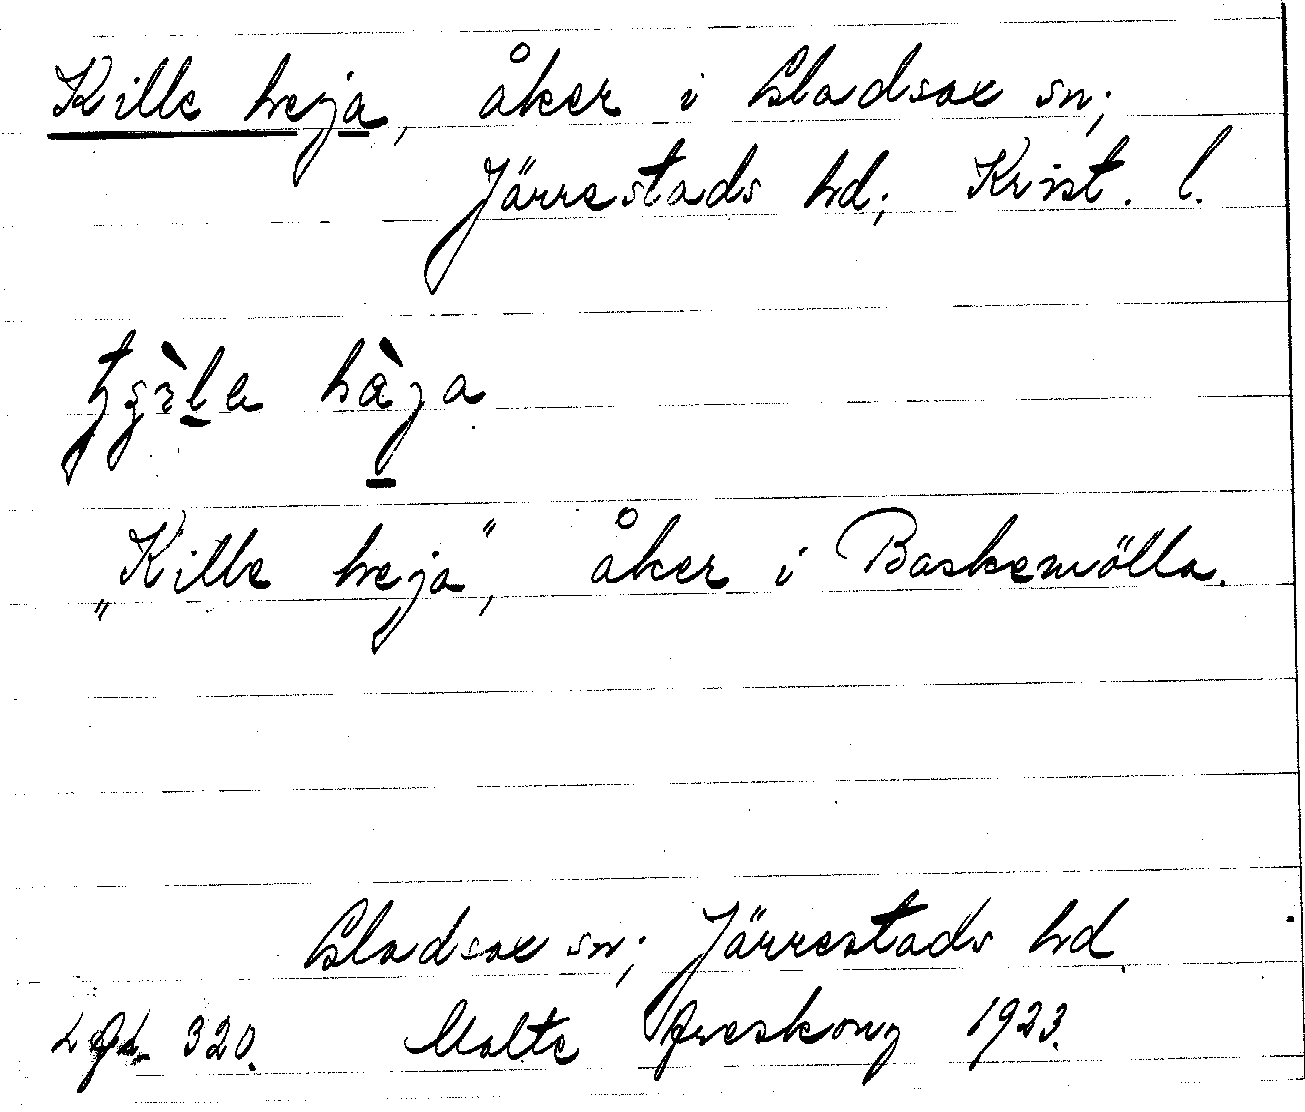 Kille heja, åker i Gladsax sn;
Järrestads hd; Krist. l.
hàja
"Kille heja", åker i Baskemölla.
Gladsax sn; Järrestads hd.
320. Malte Areskoug 1923.